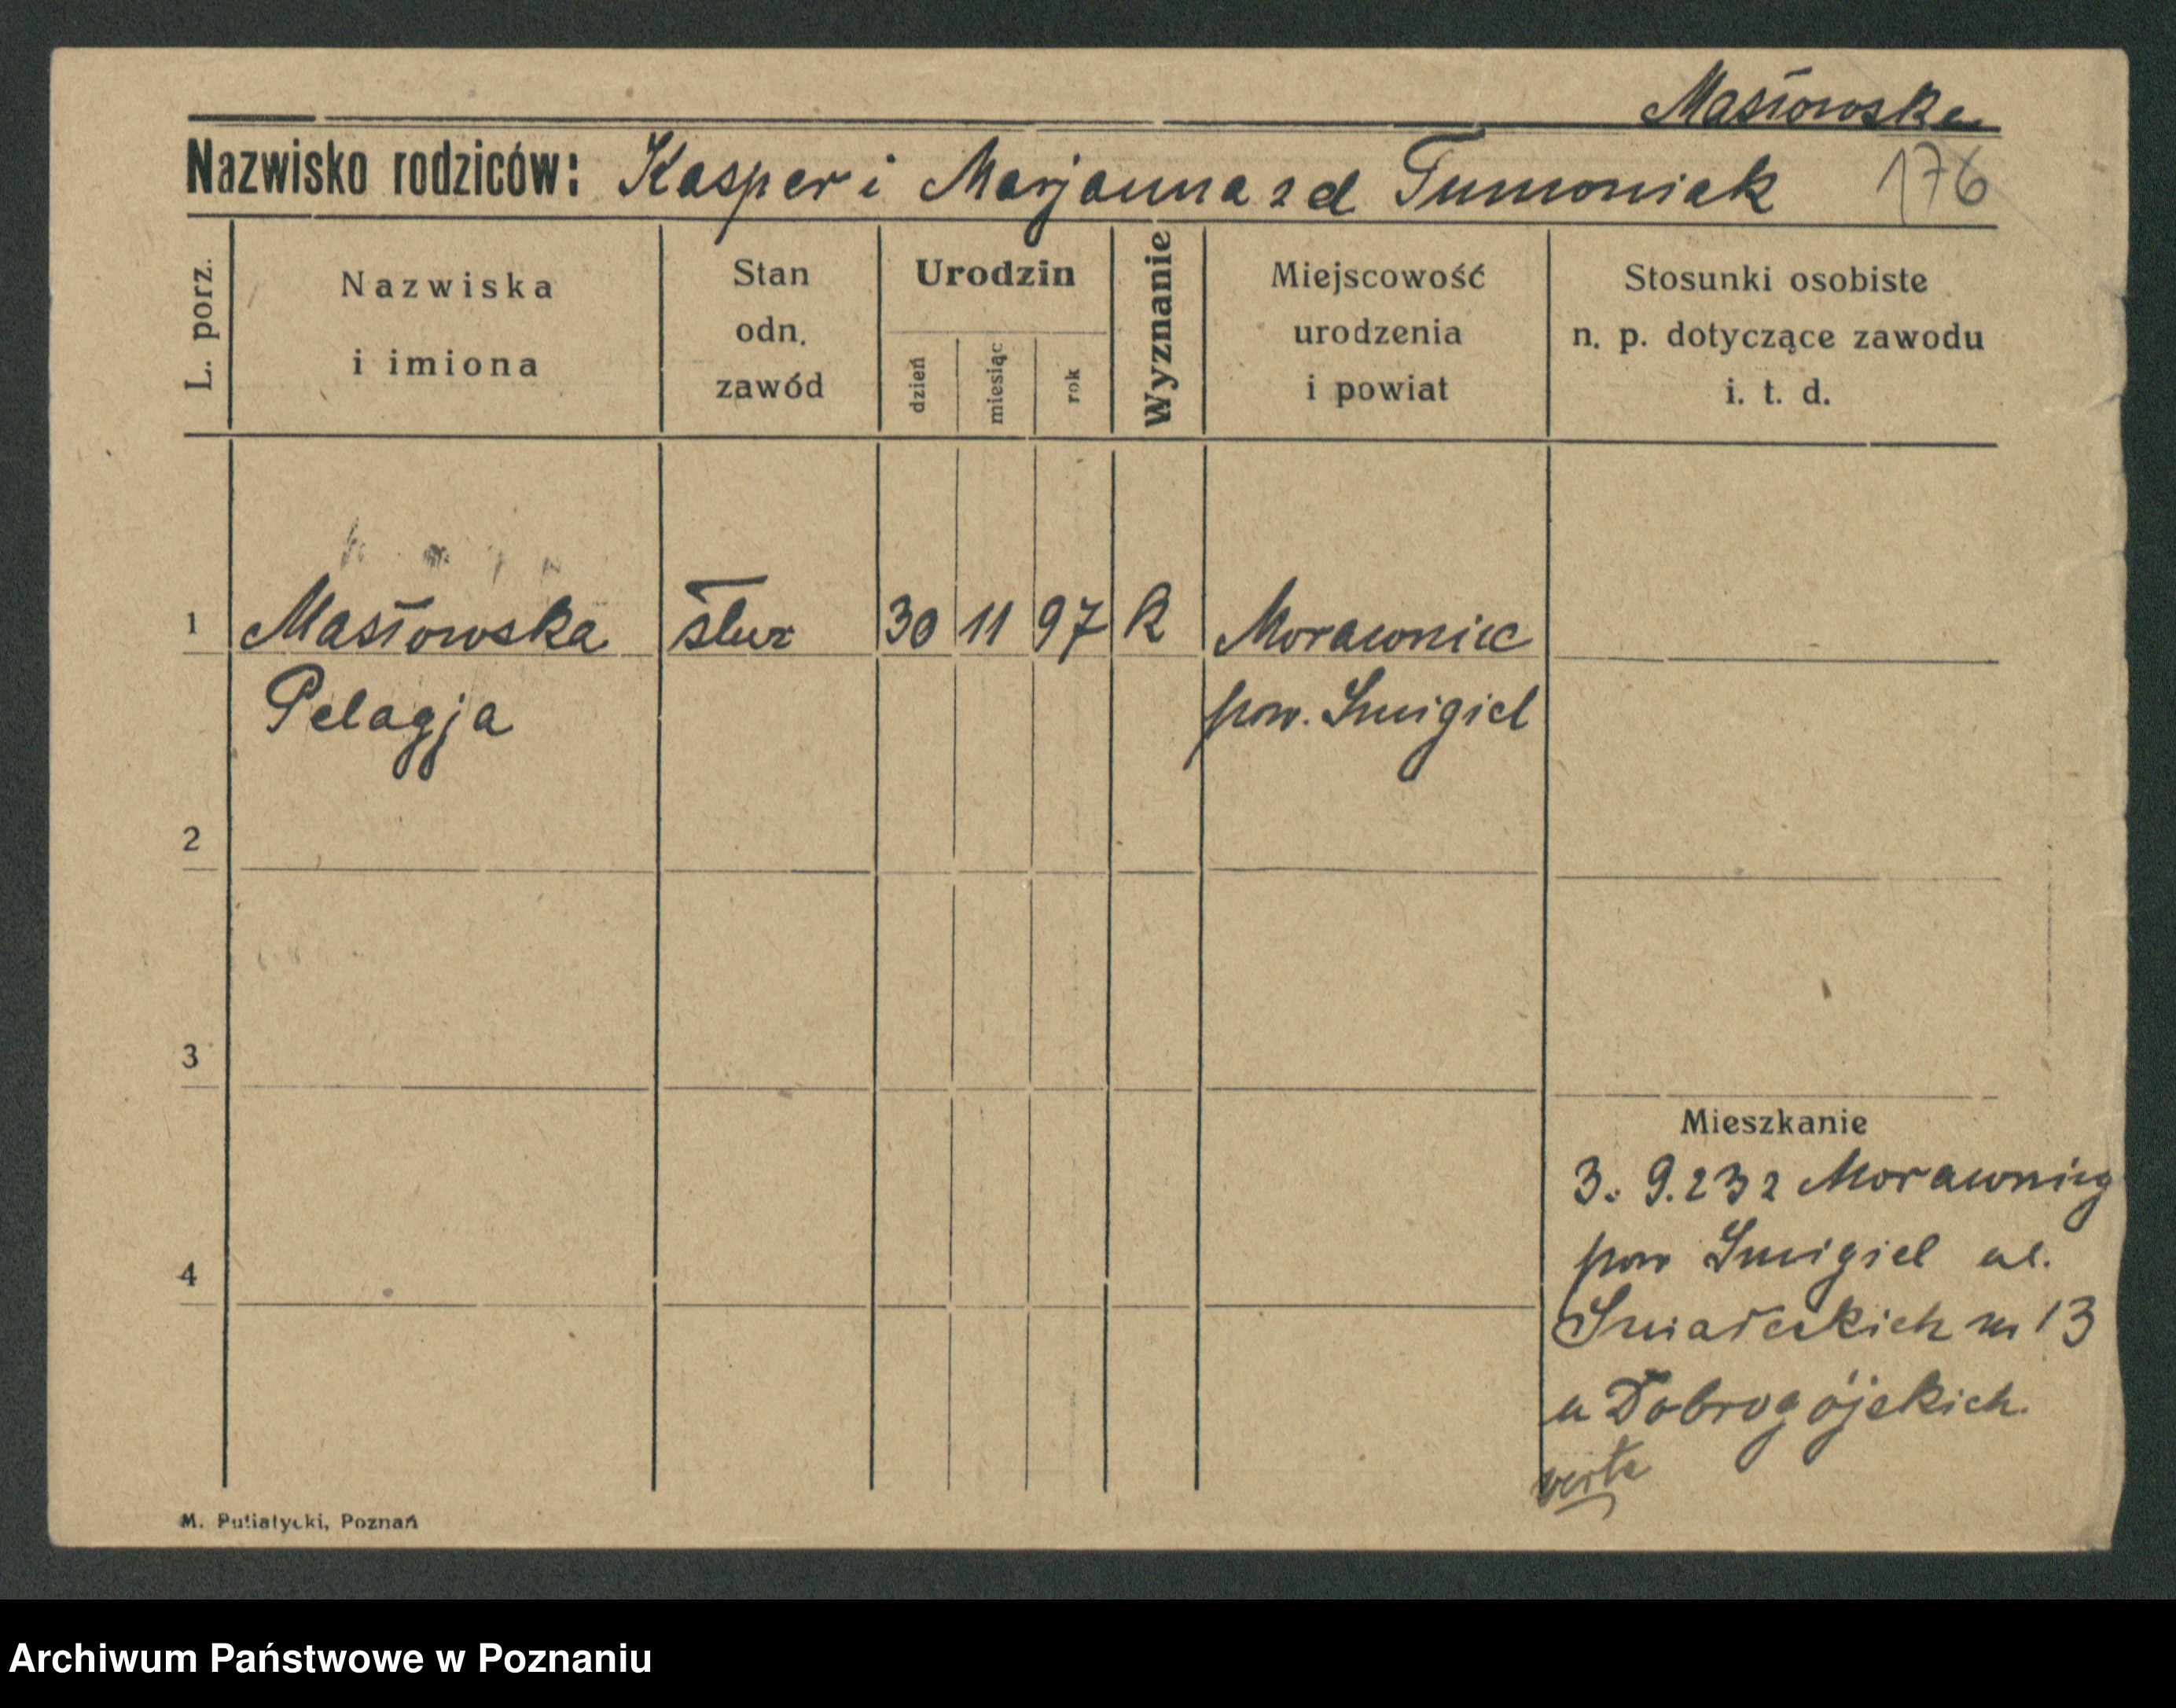 Masłowska
Nazwisko rodziców: Kasper i Marjanna zd Tumoniak 176
L. porz.
Nazwiska
i imiona
Stan
odn.
zawód
Urodzin
dzień
miesiąc
rok
Wyznanie
Miejscowość
urodzenia
i powiat
Stosunki osobiste
n. p. dotyczące zawodu
i. t. d.
1 Masłowska służ 30 11 97 R Morawnic
Pelagja pow. Smigiel
2
3
4
Mieszkanie
3. 9.232 Morawnicy
pow Smigiel ul.
Sniadeckich nr 13
u Dobrogójskich.
verte
M. Putiatycki, Poznań
Archiwum Państwowe w Poznaniu